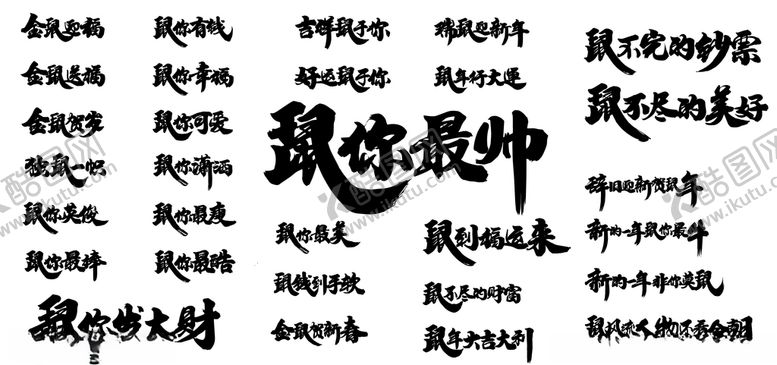 金鼠迎福
金鼠送福
金鼠贺岁
独鼠一帜
鼠你英俊
鼠你最棒
鼠你发大财
鼠你有钱
鼠你幸福
鼠你可爱
鼠你潇洒
鼠你最瘦
鼠你最酷
吉祥鼠于你
好运鼠于你
瑞鼠迎新年
鼠年行大运
鼠你最帅
鼠你最美
鼠钱到手软
金鼠贺新春
鼠到福运来
鼠不尽的财富
鼠年大吉大利
鼠不完的钞票
鼠不尽的美好
辞旧迎新贺鼠年
新的一年鼠你最牛
新的一年非你莫鼠
鼠风流人物还看今朝
酷图网
www.ikutu.com